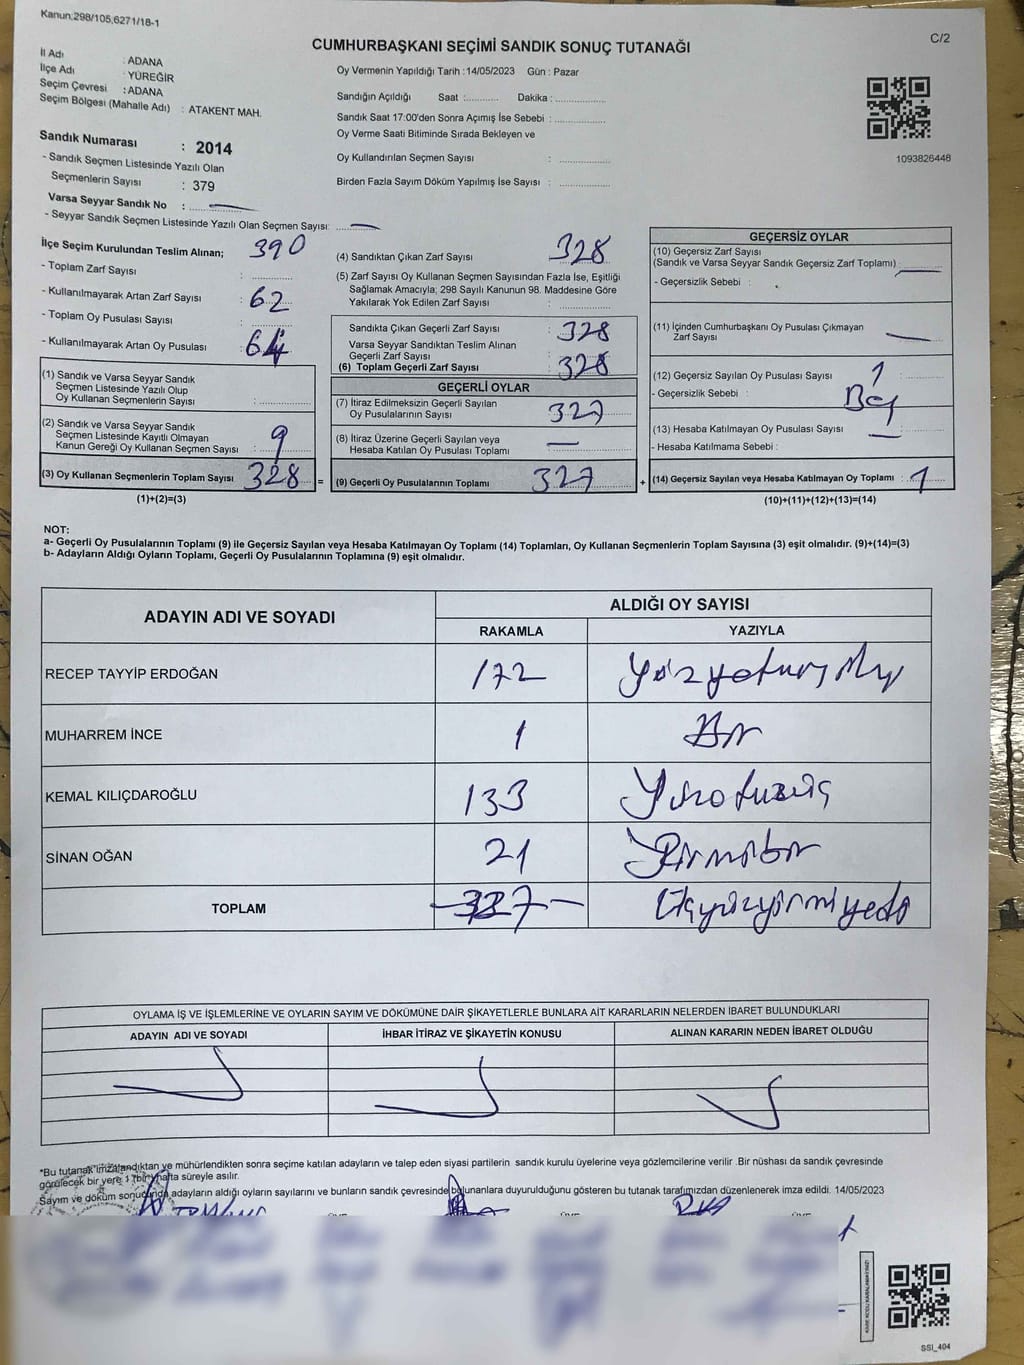 Kanun;298/105,6271/18-1
C/2
CUMHURBAŞKANI SEÇİMİ SANDIK SONUÇ TUTANAĞI
İl Adı : ADANA
İlçe Adı : YÜREĞİR
Seçim Çevresi : ADANA
Seçim Bölgesi (Mahalle Adı) : ATAKENT MAH.
Oy Vermenin Yapıldığı Tarih : 14/05/2023 Gün : Pazar
Sandığın Açıldığı Saat :........... Dakika : ................
Sandık Saat 17:00'den Sonra Açımış İse Sebebi : ................
Oy Verme Saati Bitiminde Sırada Bekleyen ve
Oy Kullandırılan Seçmen Sayısı : ................
Birden Fazla Sayım Döküm Yapılmış İse Sayısı : ................
1093826448
Sandık Numarası : 2014
- Sandık Seçmen Listesinde Yazılı Olan
Seçmenlerin Sayısı : 379
Varsa Seyyar Sandık No : —
- Seyyar Sandık Seçmen Listesinde Yazılı Olan Seçmen Sayısı: —
İlçe Seçim Kurulundan Teslim Alınan; 390
- Toplam Zarf Sayısı : ............
- Kullanılmayarak Artan Zarf Sayısı : 62
- Toplam Oy Pusulası Sayısı : ............
- Kullanılmayarak Artan Oy Pusulası : 64
(1) Sandık ve Varsa Seyyar Sandık
Seçmen Listesinde Yazılı Olup
Oy Kullanan Seçmenlerin Sayısı : ............
(2) Sandık ve Varsa Seyyar Sandık
Seçmen Listesinde Kayıtlı Olmayan
Kanun Gereği Oy Kullanan Seçmen Sayısı : 9
(3) Oy Kullanan Seçmenlerin Toplam Sayısı 328 =
(1)+(2)=(3)
(4) Sandıktan Çıkan Zarf Sayısı : 328
(5) Zarf Sayısı Oy Kullanan Seçmen Sayısından Fazla İse, Eşitliği
Sağlamak Amacıyla; 298 Sayılı Kanunun 98. Maddesine Göre
Yakılarak Yok Edilen Zarf Sayısı : ............
Sandıkta Çıkan Geçerli Zarf Sayısı : 328
Varsa Seyyar Sandıktan Teslim Alınan
Geçerli Zarf Sayısı :
(6) Toplam Geçerli Zarf Sayısı : 328
GEÇERLİ OYLAR
(7) İtiraz Edilmeksizin Geçerli Sayılan
Oy Pusulalarının Sayısı : 327
(8) İtiraz Üzerine Geçerli Sayılan veya
Hesaba Katılan Oy Pusulası Toplamı : —
(9) Geçerli Oy Pusulalarının Toplamı : 327 +
GEÇERSİZ OYLAR
(10) Geçersiz Zarf Sayısı
(Sandık ve Varsa Seyyar Sandık Geçersiz Zarf Toplamı) : —
- Geçersizlik Sebebi :
(11) İçinden Cumhurbaşkanı Oy Pusulası Çıkmayan
Zarf Sayısı —
(12) Geçersiz Sayılan Oy Pusulası Sayısı : 1
- Geçersizlik Sebebi :
(13) Hesaba Katılmayan Oy Pusulası Sayısı : —
- Hesaba Katılmama Sebebi :
(14) Geçersiz Sayılan veya Hesaba Katılmayan Oy Toplamı : 1
(10)+(11)+(12)+(13)=(14)
NOT:
a- Geçerli Oy Pusulalarının Toplamı (9) ile Geçersiz Sayılan veya Hesaba Katılmayan Oy Toplamı (14) Toplamları, Oy Kullanan Seçmenlerin Toplam Sayısına (3) eşit olmalıdır. (9)+(14)=(3)
b- Adayların Aldığı Oyların Toplamı, Geçerli Oy Pusulalarının Toplamına (9) eşit olmalıdır.
ADAYIN ADI VE SOYADI ALDIĞI OY SAYISI
RAKAMLA YAZIYLA
RECEP TAYYİP ERDOĞAN 172
MUHARREM İNCE 1 Bir
KEMAL KILIÇDAROĞLU 133 Yüzotuzüç
SİNAN OĞAN 21 Yirmibir
TOPLAM —327— Üçyüzyirmiyedi
OYLAMA İŞ VE İŞLEMLERİNE VE OYLARIN SAYIM VE DÖKÜMÜNE DAİR ŞİKAYETLERLE BUNLARA AİT KARARLARIN NELERDEN İBARET BULUNDUKLARI
ADAYIN ADI VE SOYADI İHBAR İTİRAZ VE ŞİKAYETİN KONUSU ALINAN KARARIN NEDEN İBARET OLDUĞU
*Bu tutanak imzalandıktan ve mühürlendikten sonra seçime katılan adayların ve talep eden siyasi partilerin sandık kurulu üyelerine veya gözlemcilerine verilir .Bir nüshası da sandık çevresinde
görülecek bir yere 1 (bir) hafta süreyle asılır.
Sayım ve döküm sonucunda adayların aldığı oyların sayılarını ve bunların sandık çevresinde bulunanlara duyurulduğunu gösteren bu tutanak tarafımızdan düzenlenerek imza edildi. 14/05/2023
SSI_404